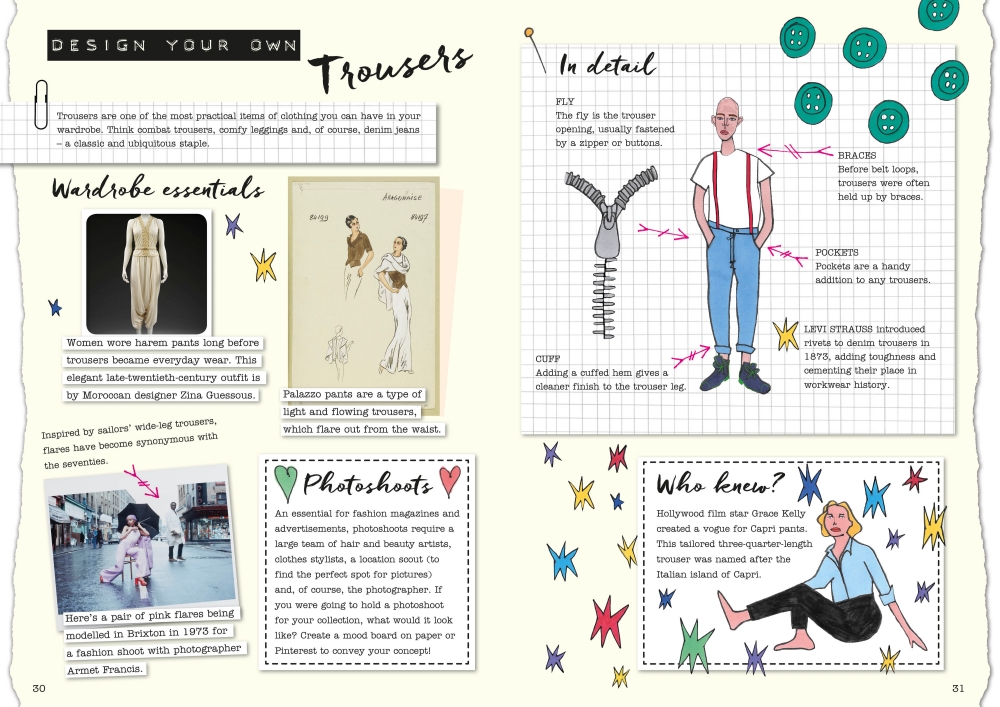 DESIGN YOUR OWN
Trousers
Trousers are one of the most practical items of clothing you can have in your
wardrobe. Think combat trousers, comfy leggings and, of course, denim jeans
– a classic and ubiquitous staple.
Wardrobe essentials
Women wore harem pants long before
trousers became everyday wear. This
elegant late-twentieth-century outfit is
by Moroccan designer Zina Guessous.
ARAGONAISE
84199
84197
Palazzo pants are a type of
light and flowing trousers,
which flare out from the waist.
Inspired by sailors’ wide-leg trousers,
flares have become synonymous with
the seventies.
Here’s a pair of pink flares being
modelled in Brixton in 1973 for
a fashion shoot with photographer
Armet Francis.
Photoshoots
An essential for fashion magazines and
advertisements, photoshoots require a
large team of hair and beauty artists,
clothes stylists, a location scout (to
find the perfect spot for pictures)
and, of course, the photographer. If
you were going to hold a photoshoot
for your collection, what would it look
like? Create a mood board on paper or
Pinterest to convey your concept!
30
In detail
FLY
The fly is the trouser
opening, usually fastened
by a zipper or buttons.
BRACES
Before belt loops,
trousers were often
held up by braces.
POCKETS
Pockets are a handy
addition to any trousers.
LEVI STRAUSS introduced
rivets to denim trousers in
1873, adding toughness and
cementing their place in
workwear history.
CUFF
Adding a cuffed hem gives a
cleaner finish to the trouser leg.
Who knew?
Hollywood film star Grace Kelly
created a vogue for Capri pants.
This tailored three-quarter-length
trouser was named after the
Italian island of Capri.
31